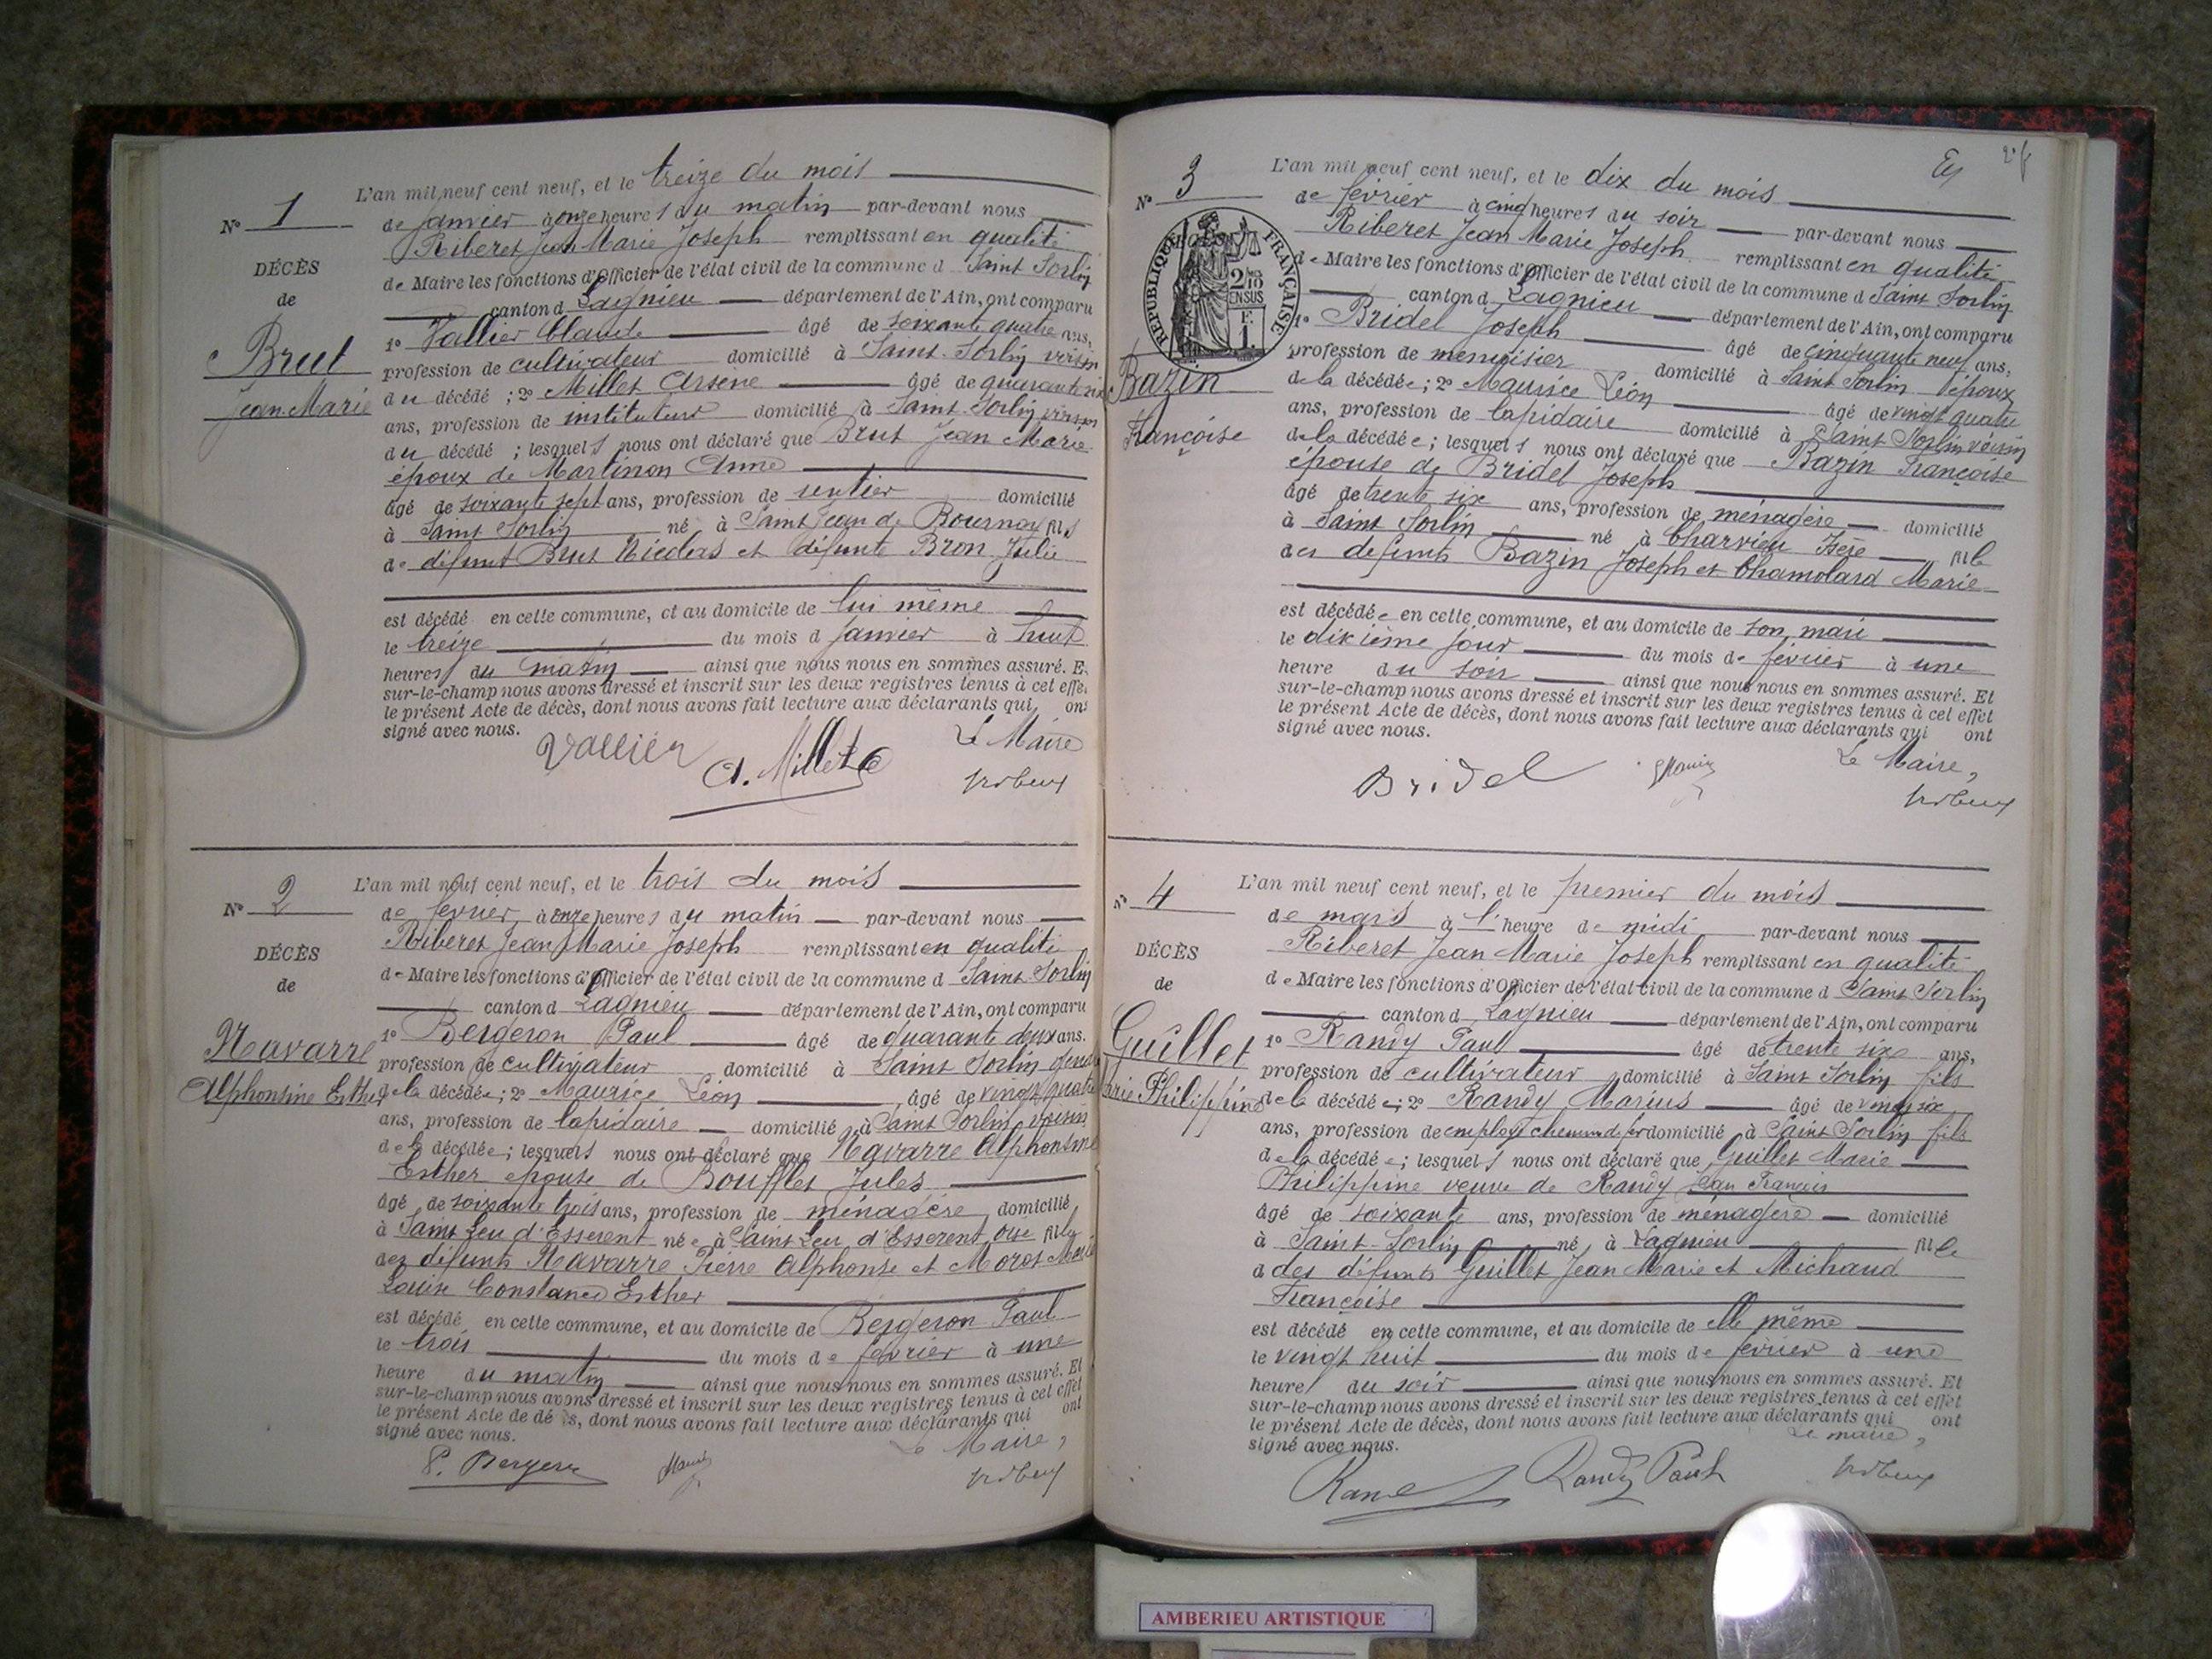 N° 1
DÉCÈS
de
Brut
Jean Marie
L'an mil neuf cent neuf, et le treize du mois
de janvier à onze heures du matin par-devant nous
Riberet Jean Marie Joseph remplissant en qualité
de Maire les fonctions d'Officier de l'état civil de la commune d Saint Sorlin
canton d Lagnieu département de l'Ain, ont comparu
1° Vallier Claude âgé de soixante quatre ans,
profession de cultivateur domicilié à Saint-Sorlin voisin
du décédé ; 2° Millet Arsène âgé de quarante
ans, profession de instituteur domicilié à Saint-Sorlin voisin
du décédé ; lesquels nous ont déclaré que Brut Jean Marie
époux de Martinon Anne
âgé de soixante sept ans, profession de rentier domicilié
à Saint Sorlin né à Saint Jean de Bournay fils
de défunt Brut Nicolas et défunte Bron Julie
est décédé en cette commune, et au domicile de lui même
le treize du mois d janvier à huit
heures du matin ainsi que nous nous en sommes assuré. E
sur-le-champ nous avons dressé et inscrit sur les deux registres tenus à cet effe
le présent Acte de décès, dont nous avons fait lecture aux déclarants qui on
signé avec nous.
Le Maire
Vallier A. Millet
N° 2
DÉCÈS
de
Navarre
Alphonsine Esther
L'an mil neuf cent neuf, et le trois du mois
de février à onze heures du matin par-devant nous
Riberet Jean Marie Joseph remplissant en qualité
de Maire les fonctions d'Officier de l'état civil de la commune d Saint Sorlin
canton d Lagnieu département de l'Ain, ont comparu
1° Bergeron Paul âgé de quarante deux ans.
profession de cultivateur domicilié à Saint Sorlin gendre
de la décédée ; 2° Maurice Léon âgé de vingt quatre
ans, profession de lapidaire domicilié à Saint Sorlin voisin
de la décédée ; lesquels nous ont déclaré que Navarre Alphonsine
Esther épouse de Boufflet Jules
âgé de soixante trois ans, profession de ménagère domicilié
à Saint Leu d'Esserent née à Saint Leu d'Esserent Oise fille
des défunts Navarre Pierre Alphonse et Morot
Louise Constance Esther
est décédé en cette commune, et au domicile de Bergeron Paul
le trois du mois de février à une
heure du matin ainsi que nous nous en sommes assuré. Et
sur-le-champ nous avons dressé et inscrit sur les deux registres tenus à cet effet
le présent Acte de dé s, dont nous avons fait lecture aux déclarants qui ont
signé avec nous.
Le Maire,
P. Bergeron
N° 3
Bazin
Françoise
RÉPUBLIQUE FRANÇAISE
2/10
EN SUS
F.
1.
L'an mil neuf cent neuf, et le dix du mois
de février à cinq heures du soir par-devant nous
Riberet Jean Marie Joseph remplissant en qualité
de Maire les fonctions d'Officier de l'état civil de la commune d Saint Sorlin
canton d Lagnieu département de l'Ain, ont comparu
1° Bridel Joseph âgé de cinquante neuf ans,
profession de menuisier domicilié à Saint Sorlin l'époux
de la décédée ; 2° Maurice Léon âgé de vingt quatre
ans, profession de lapidaire domicilié à Saint Sorlin voisin
de la décédée ; lesquels nous ont déclaré que Bazin Françoise
épouse de Bridel Joseph
âgé de trente six ans, profession de ménagère domicilié
à Saint Sorlin né à Charvieu Isère fille
des défunts Bazin Joseph et Chamolard Marie
est décédée en cette commune, et au domicile de son mari
le dixième jour du mois de février à une
heure du soir ainsi que nous nous en sommes assuré. Et
sur-le-champ nous avons dressé et inscrit sur les deux registres tenus à cet effet
le présent Acte de décès, dont nous avons fait lecture aux déclarants qui ont
signé avec nous.
Le Maire,
Bridel
N° 4
DÉCÈS
de
Guillet
Marie Philippine
L'an mil neuf cent neuf, et le premier du mois
de mars à l'heure de midi par-devant nous
Riberet Jean Marie Joseph remplissant en qualité
de Maire les fonctions d'Officier de l'état civil de la commune d Saint Sorlin
canton d Lagnieu département de l'Ain, ont comparu
1° Randy Paul âgé de trente six ans,
profession de cultivateur domicilié à Saint Sorlin fils
de la décédée ; 2° Randy Marius âgé de vingt six
ans, profession de employé chemin de fer domicilié à Saint Sorlin fils
de la décédée ; lesquels nous ont déclaré que Guillet Marie
Philippine veuve de Randy Jean François
âgé de soixante ans, profession de ménagère domicilié
à Saint-Sorlin né à Lagnieu fille
d des défunts Guillet Jean Marie et Michaud
Françoise
est décédé en cette commune, et au domicile de elle même
le vingt huit du mois de février à une
heure du soir ainsi que nous nous en sommes assuré. Et
sur-le-champ nous avons dressé et inscrit sur les deux registres tenus à cet effet
le présent Acte de décès, dont nous avons fait lecture aux déclarants qui ont
signé avec nous.
Le maire,
Randy Paul
AMBERIEU ARTISTIQUE